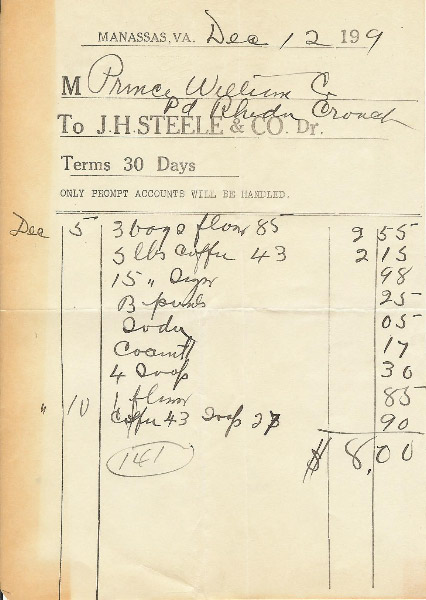 MANASSAS, VA. Dec 12 199
M Prince William Co
Pd
To J.H. STEELE & CO. Dr.
Terms 30 Days
ONLY PROMPT ACCOUNTS WILL BE HANDLED.
Dec 5 3 bags flour 85 2 55
5 lbs Coffee 43 2 15
15 " Sugar 98
B 25
Soda 05
17
4 Soap 30
1 flour 85
" 10 Coffee 43 Soap 27 90
141 $ 8,00